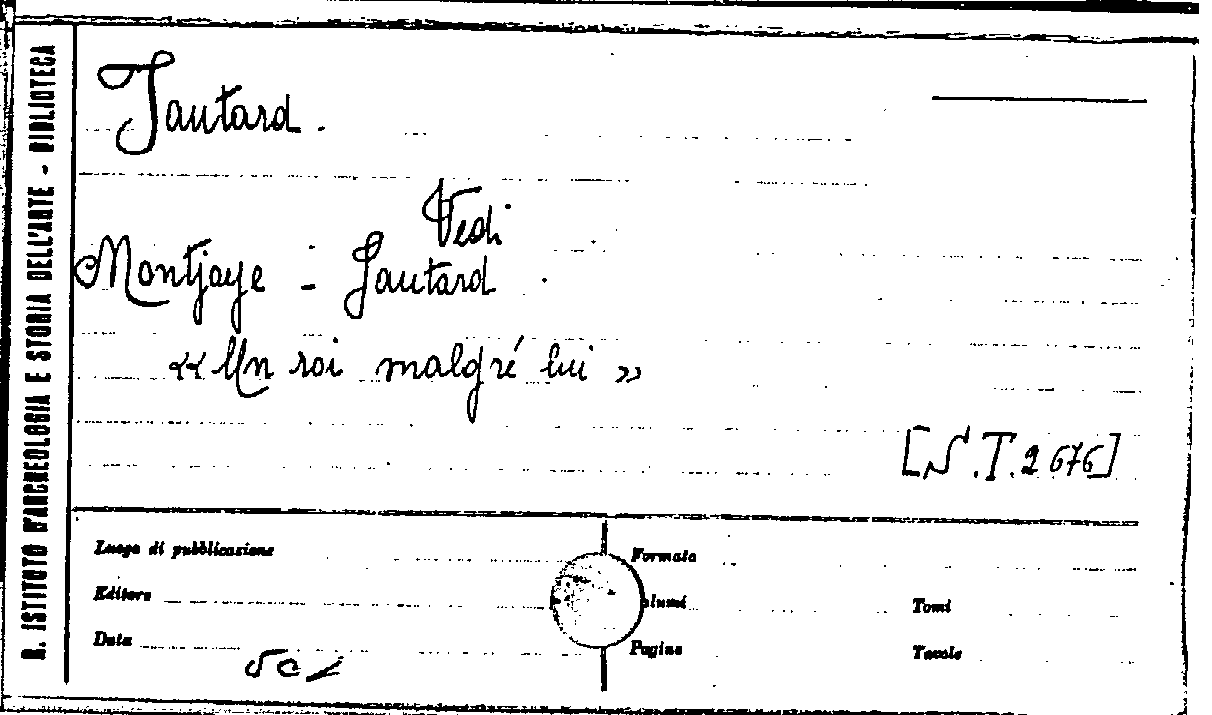 R. ISTITUTO D'ARCHEOLOGIA E STORIA DELL'ARTE - BIBLIOTECA
Jautard.
Vedi
Montjoye - Jautard.
«Un roi malgré lui»
[S.T.2676]
Luogo di pubblicazione
Formato
Editore
lumi
Tomi
Data
Pagine
Tavole